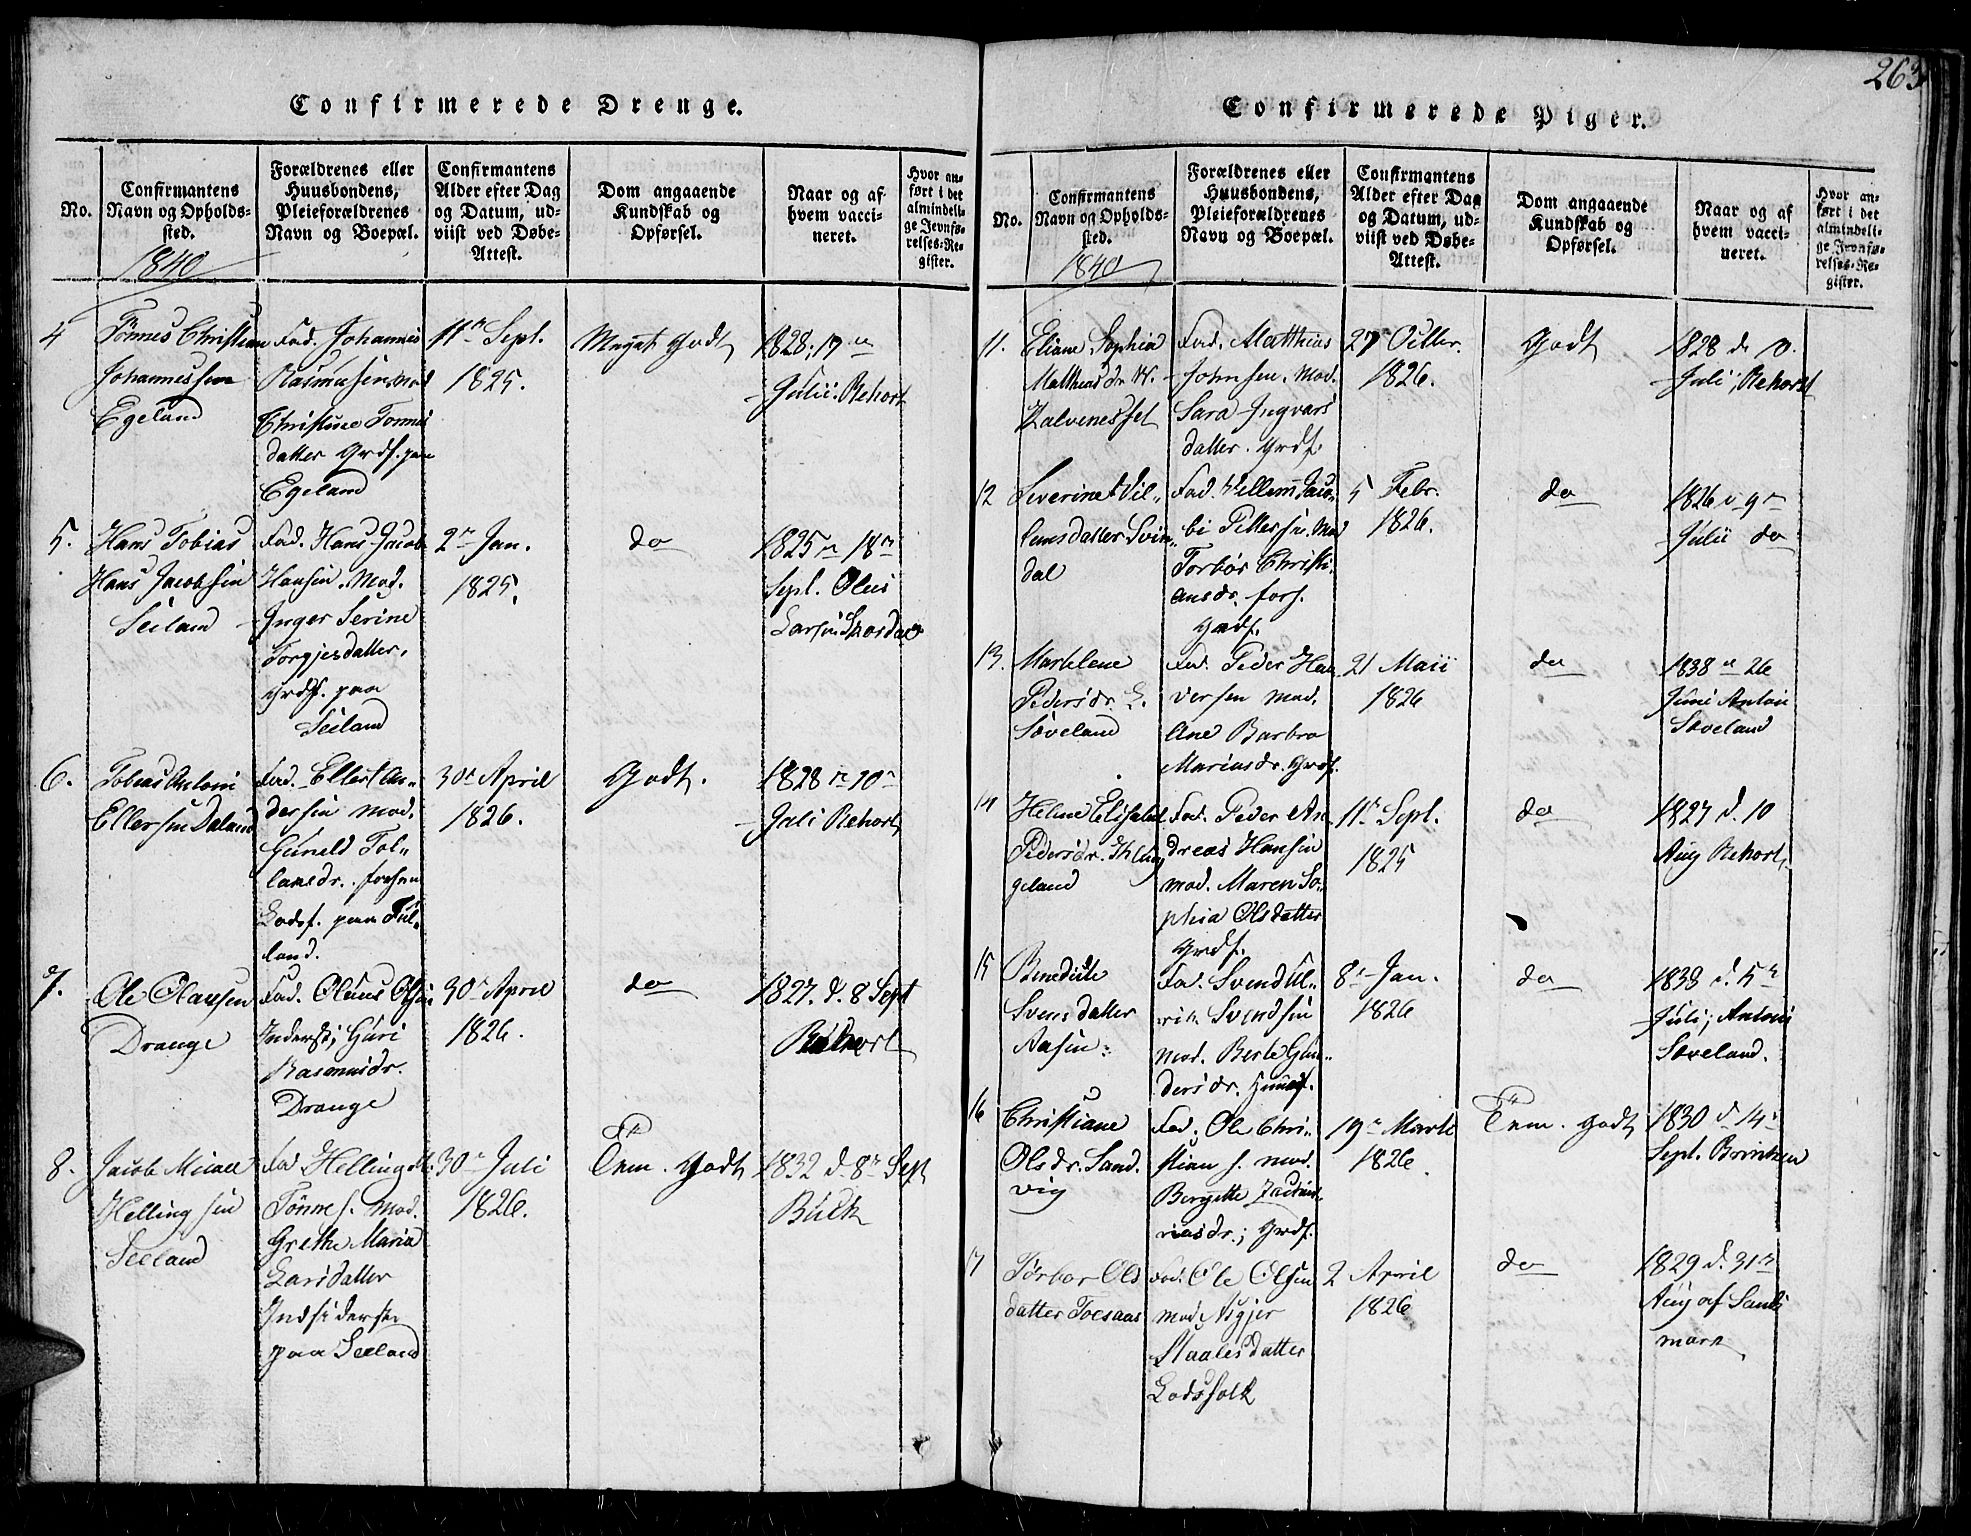 263
Confirmerede Drenge.
No.
Confirmantens
Navn og Opholds-
sted.
1840
Forældrenes eller
Huusbondens,
Pleieforældrenes
Navn og Boepæl.
Confirmantens
Alder efter Dag
og Datum, ud-
viist ved Døbe-
Attest.
Dom angaaende
Kundskab og
Opførsel.
Naar og af
hvem vacci-
neret.
Hvor an-
ført i det
almindeli-
ge Jevnfø-
relses-Re-
gister.
4
Tönnes Christian
Johannessen
Egeland
Fad. Johannes
Rasmusen, mod
Christine Tonnes
datter Grdf. paa
Egeland
11te Sept.
1825.
Meget Godt
1828,
Julii. Rehort
5.
Hans Tobias
Hans Jacobsen
Seiland
Fad. Hans Jacob
Hansen. Mod.
Inger Serine
Torgjesdatter,
Grdf. paa
Seiland
2n Jan.
1825.
do
1825 n 18n
Sept. Olus
Larsen
6.
Tobias Antoni
Ellersen Daland
Fad. Ellert An-
dersen mod.
Guneld Tol-
laksdr.
Lodsf. paa
land.
30n April
1826.
Godt.
1828 n 10n
Juli Rehort
7.
Ole Olausen
Drange
Fad. Olaus Olsen
Inderst; Guri
Rasmusdr.
Drange
30n April
1826.
do
1827. d. 8 Sept
Rehort
8.
Jacob Micael
Helling sen
Seeland
Fad. Helling
Tönnes. Mod.
Grethe Maria
Larsdatter
Indsidderfk
paa Seeland
30n Juli
1826.
Tem. Godt
1832 d 8n Sept
Buck
Confirmerede Piger.
No.
Confirmantens
Navn og Opholds-
sted.
1840
Forældrenes eller
Huusbondens,
Pleieforældrenes
Navn og Boepæl.
Confirmantens
Alder efter Dag
og Datum, ud-
viist ved Døbe-
Attest.
Dom angaaende
Kundskab og
Opførsel.
Naar og af
hvem vacci-
neret.
Hvor an-
ført i det
almindeli-
ge Jevnfø-
relses-Re-
gister.
11.
Eliane Sophia
Matthias dr N.
Kalvenesset
Fad. Matthias
Johnsen. Mod.
Sara Ingvars
datter. Grdf.
27 Octbr.
1826.
Godt
1828 d 10.
Juli, Rehorst
12
Severine Vil-
lumsdatter Svin-
dal
Fad. Villum Jaco-
bi Pettersen. Mod
Torbor Christi-
ansdr. forh.
Grdf.
5 Febr.
1826.
do
1826 n 9n
Julii do
13.
Marlelene
Pedersdr. L.
Söveland
Fad. Peder Hal
versen mod.
Ane Barbro
Mariusdr. Grdf.
21 Maii
1826
do
1838 n 26
Juni Antoni
Söveland
14
Helene Elisabet
Pedersdr.
geland
Fad. Peder An
dreas Hansen
mod. Maren So-
phia Olsdatter
Grdf.
11n Sept.
1825
do
1827 d. 10
Aug Rehort
15
Benedicte
Svensdatter
Aasen
Fad. Svend Ul-
rik Svendsen
mod. Berte Gun-
dersdr. Huusf.
8n Jan.
1826
do
1838 d. 5n
Juli; Antoni
Söveland.
16
Christiane
Olsdr. Sand.
vig
Fad. Ole Chri-
stian s. mod.
Bergitte Zacha-
riasdr.; Grdf.
19n Marti
1826.
Tem. godt
1830 d 14n
Sept. Brinken
17
Törbor Ols
datter Toesaas
Fad. Ole Olsen
mod. Asgjer
Staalesdatter
Lodsfolk
2 April
1826
do
1829 d. 31n
Aug af Sand
mark